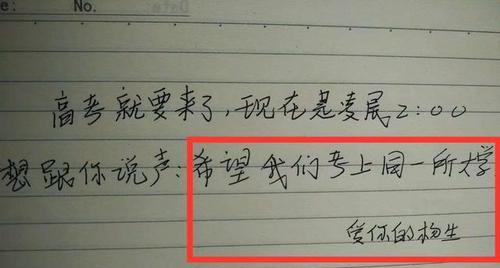 e: No.
高考就要来了，现在是凌晨2:00
想跟你说声:希望我们考上同一所大学
爱你的杨生